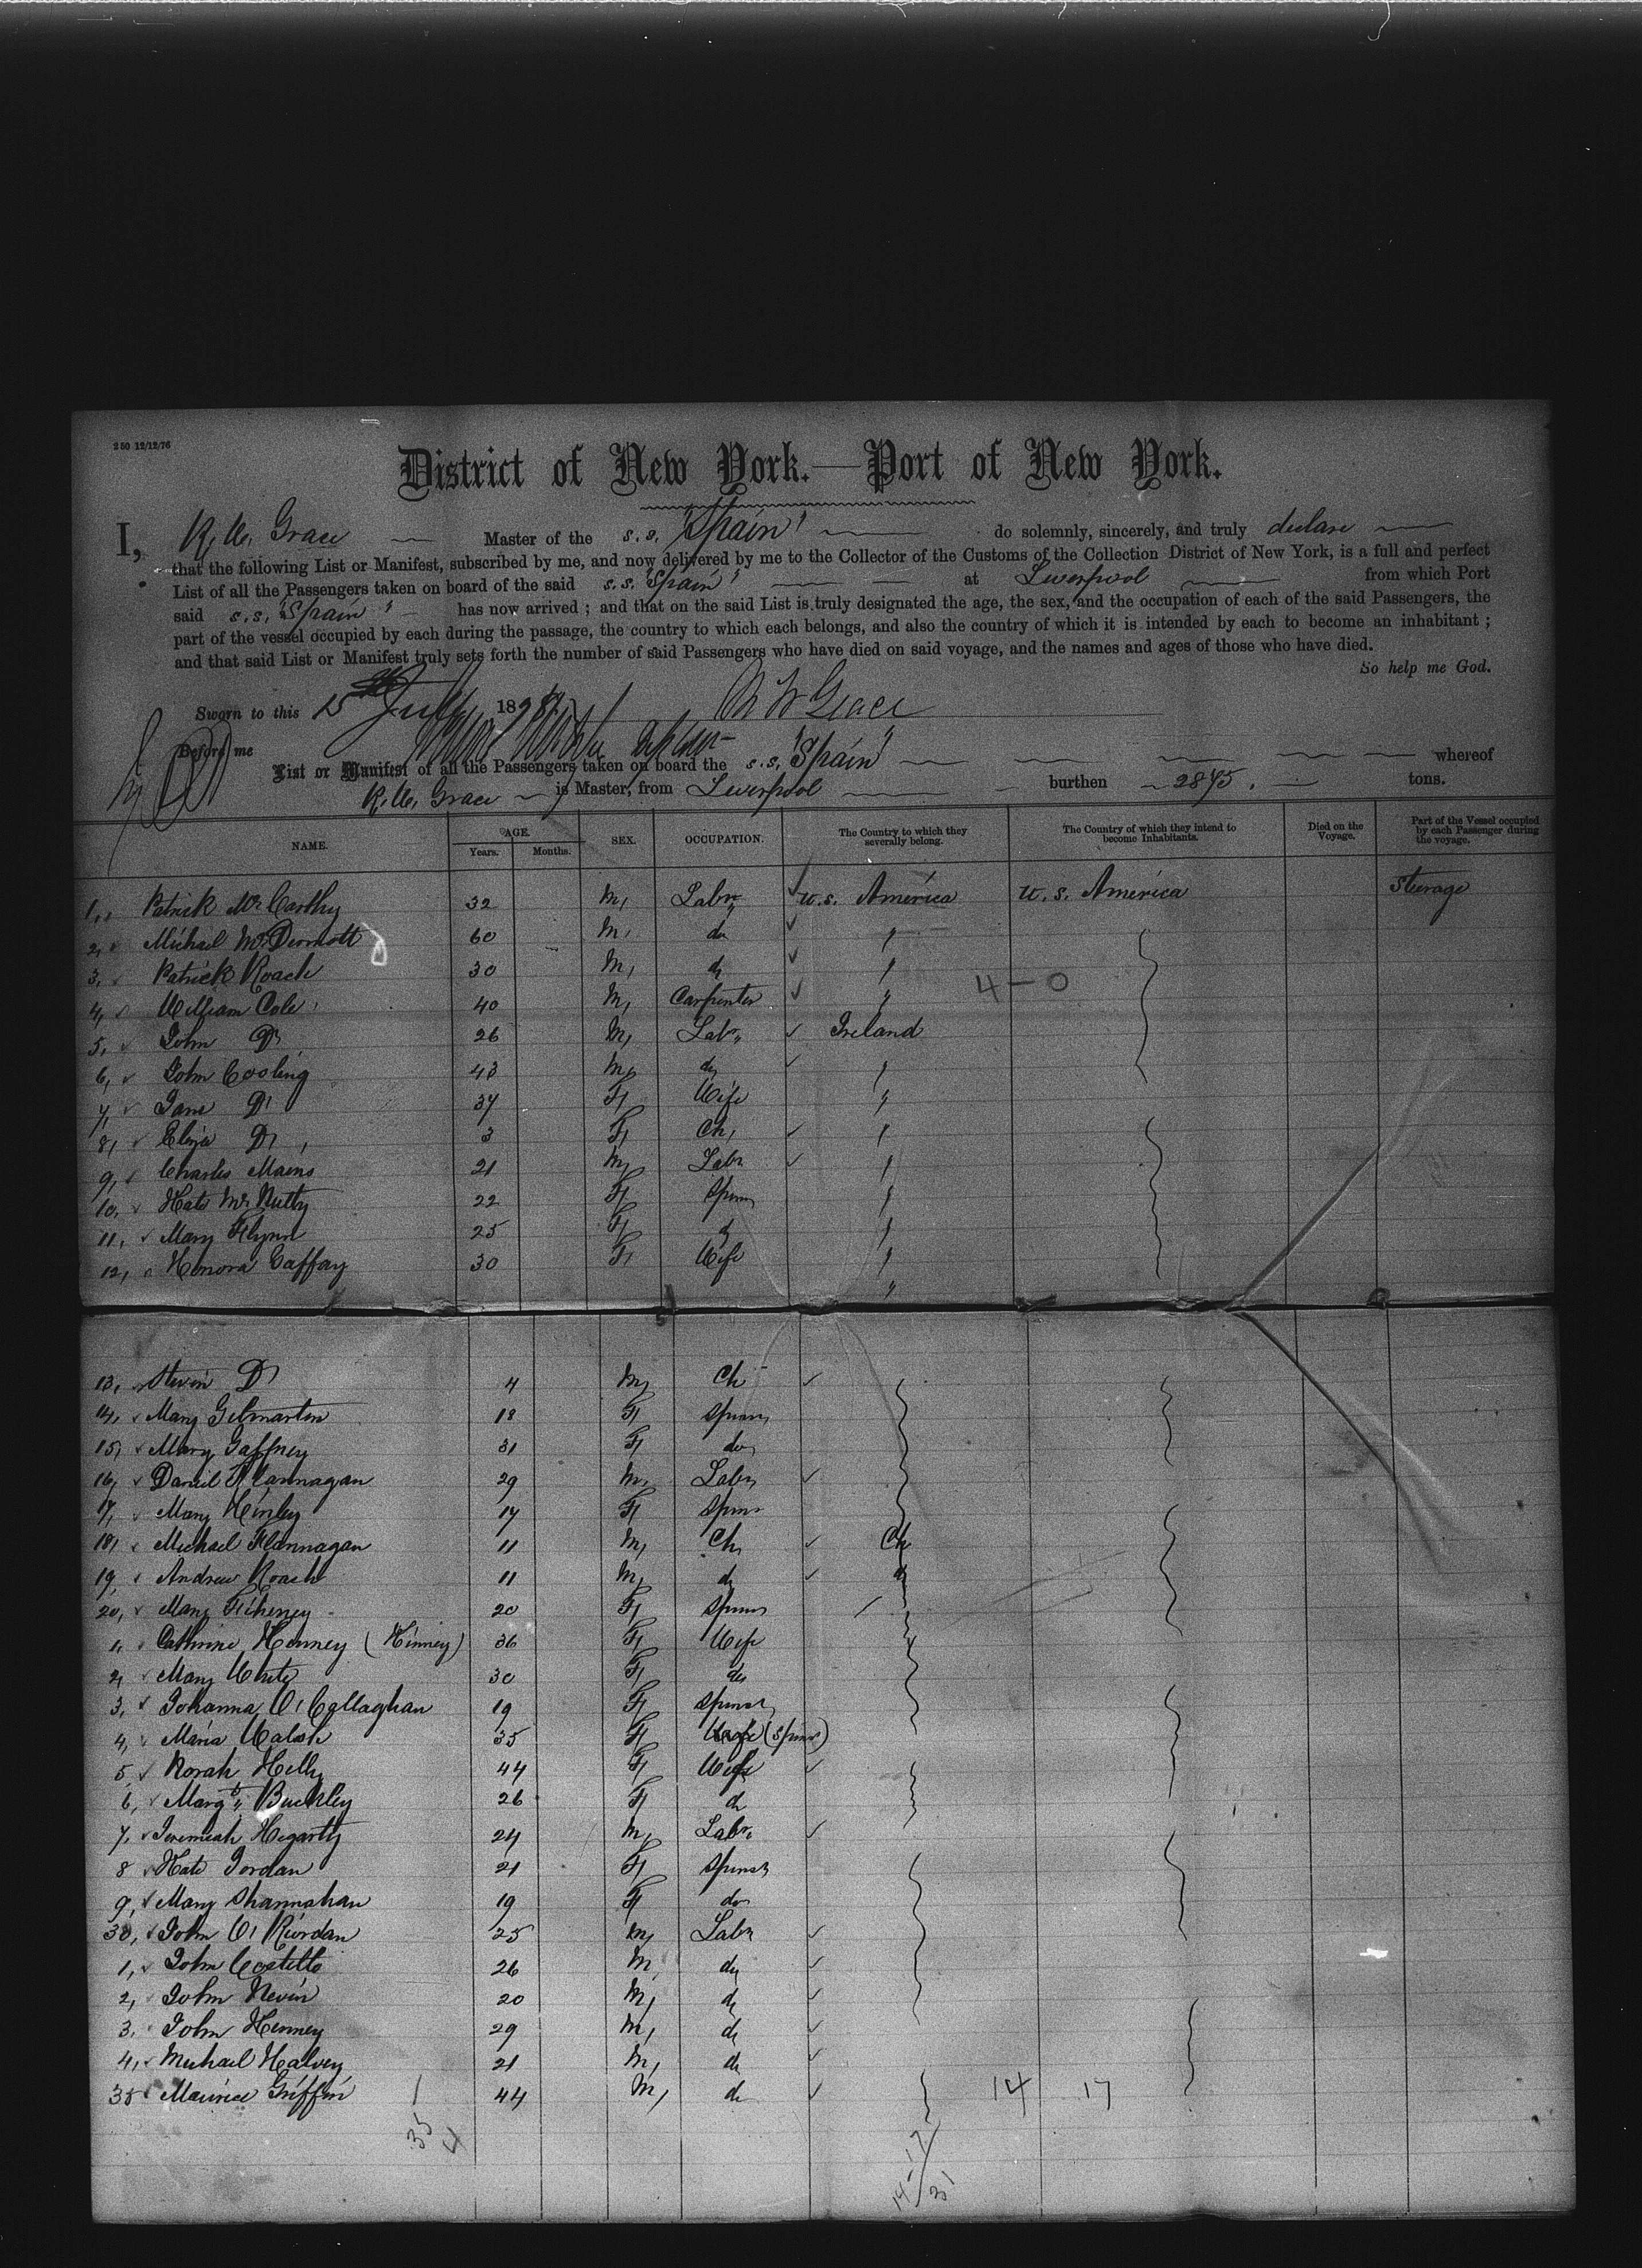 250 12/12/76
District of New York.—Port of New York.
I, R. W. Grace Master of the s.s. "Spain" do solemnly, sincerely, and truly declare
that the following List or Manifest, subscribed by me, and now delivered by me to the Collector of the Customs of the Collection District of New York, is a full and perfect
List of all the Passengers taken on board of the said s.s. "Spain" at Liverpool from which Port
said s.s. "Spain" has now arrived; and that on the said List is truly designated the age, the sex, and the occupation of each of the said Passengers, the
part of the vessel occupied by each during the passage, the country to which each belongs, and also the country of which it is intended by each to become an inhabitant;
and that said List or Manifest truly sets forth the number of said Passengers who have died on said voyage, and the names and ages of those who have died.
So help me God.
Sworn to this 15th July 1878 R W Grace
Before me
List or Manifest of all the Passengers taken on board the s.s. "Spain" whereof
R. W. Grace is Master, from Liverpool burthen 2875. tons.
NAME. AGE. Years. Months. SEX. OCCUPATION. The Country to which they severally belong. The Country of which they intend to become Inhabitants. Died on the Voyage. Part of the Vessel occupied by each Passenger during the voyage.
1, Patrick McCarthy 32 M, Labr. U.S. America U.S. America Steerage
2, Michael McDermott 60 M, do "
3, Patrick Roach 30 M, do " 4-0
4, William Cole 40 M, Carpenter "
5, John Do 26 M, Labr. Ireland
6, John Cooling 43 M, do "
7, Jane Do 37 F, Wife "
8, Eliza Do 3 F, Ch, "
9, Charles Mains 21 M, Labr "
10, Kate McNulty 22 F, Spinr "
11, Mary Flynn 25 F, do "
12, Honora Caffray 30 F, Wife "
13, Steven Do 4 M, Ch
14, Mary Gilmartin 18 F, Spinr
15, Mary Gaffney 31 F, do
16, Daniel Flannagan 29 M, Labr
17, Mary Henley 17 F, Spinr
18, Michael Flannagan 11 M, Ch, Ch
19, Andrew Roach 11 M, do do
20, Mary 20 F, Spinr
1, Cathrine Kenney (Kinney) 36 F, Wife
2, Mary White 30 F, do
3, Johanna O'Callaghan 19 F, Spinst
4, Maria Walsh 35 F, Wife (Spinr)
5, Norah Kelly 44 F, Wife
6, Margt. Buckley 26 F, do
7, Jeremiah Hegarty 24 M, Labr.
8 Kate Jordan 21 F, Spinst
9, Mary Shannahan 19 F, do
30, John O'Riordan 25 M, Labr
1, John Costello 26 M, do
2, John Nevin 20 M, do
3, John Kenney 29 M, do
4, Michael Halvey 21 M, do
35 Maurice Griffin 44 M, do 14 17
35 4
14-17/31